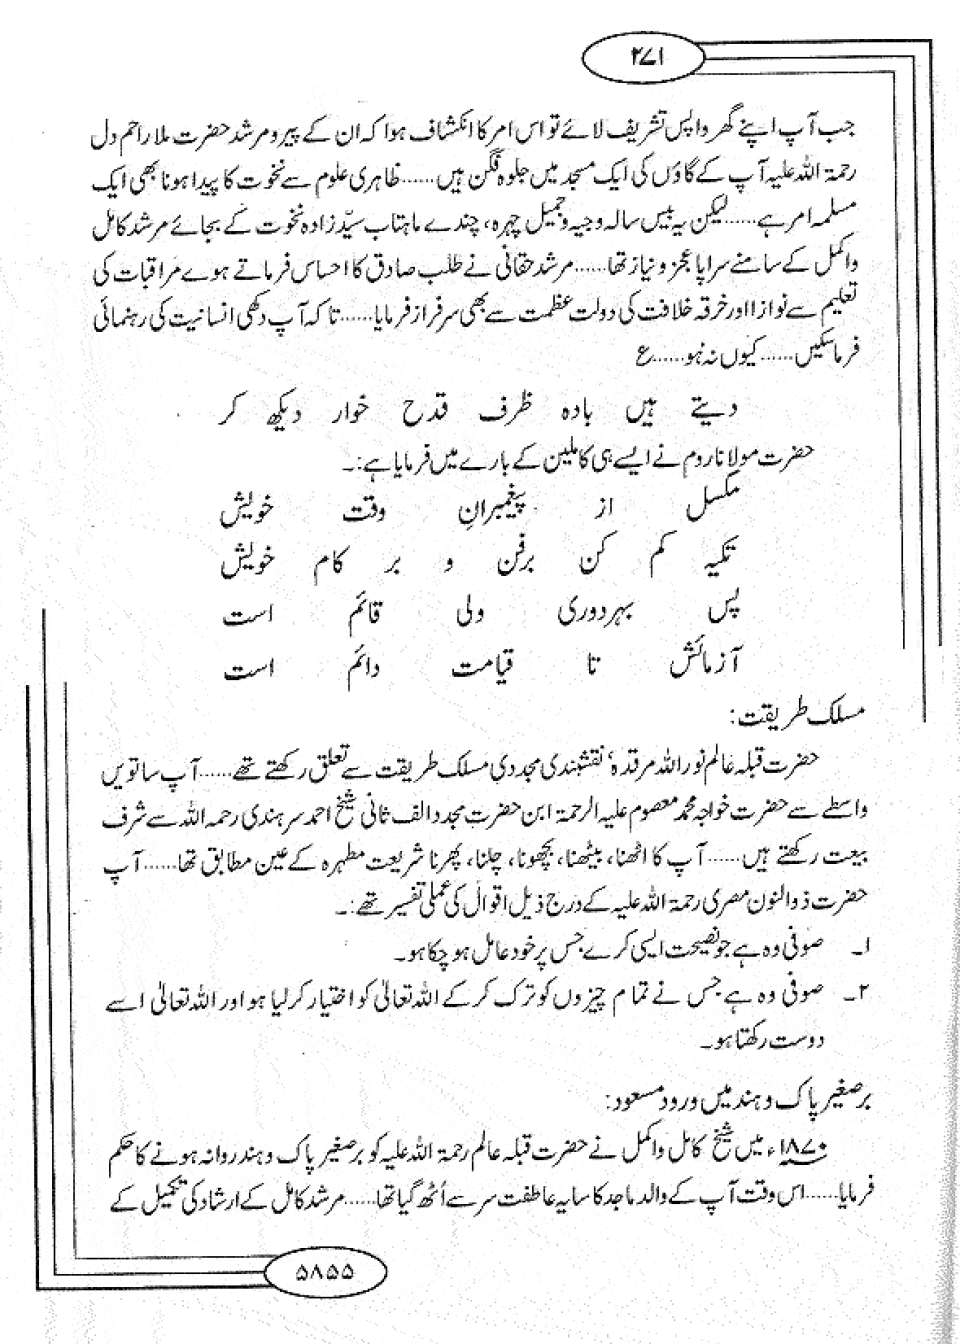 ۲۷۱
جب آپ اپنے گھر واپس تشریف لائے تو اس امر کا انکشاف ہوا کہ ان کے پیر و مرشد حضرت ملا راحم دل
رحمۃ اللہ علیہ آپ کے گاؤں کی ایک مسجد میں جلوہ فگن ہیں......ظاہری علوم سے نخوت کا پیدا ہونا بھی ایک
مسلمہ امر ہے......لیکن یہ بیس سالہ وجیہ و جمیل چہرہ، چندے ماہتاب سیّد زادہ نخوت کے بجائے مرشد کامل
واکمل کے سامنے سراپا عجز و نیاز تھا......مرشد حقانی نے طلب صادق کا احساس فرماتے ہوے مراقبات کی
تعلیم سے نوازا اور خرقہ خلافت کی دولت عظمت سے بھی سرفراز فرمایا......تاکہ آپ دکھی انسانیت کی رہنمائی
فرما سکیں......کیوں نہ ہو......ع
دیتے ہیں بادہ ظرف قدح خوار دیکھ کر
حضرت مولانا روم نے ایسے ہی کاملین کے بارے میں فرمایا ہے:۔
مکسل از پیغمبرانِ وقت خویش
تکیہ کم کن برفن و بر کام خویش
پس بہردوری ولی قائم است
آزمائش تا قیامت دائم است
مسلک طریقت:
حضرت قبلہ عالم نور اللہ مرقدہ‘ نقشبندی مجددی مسلک طریقت سے تعلق رکھتے تھے......آپ ساتویں
واسطے سے حضرت خواجہ محمد معصوم علیہ الرحمۃ ابن حضرت مجدد الف ثانی شیخ احمد سرہندی رحمہ اللہ سے شرف
بیعت رکھتے ہیں......آپ کا اٹھنا، بیٹھنا، بچھونا، چلنا، پھرنا شریعت مطہرہ کے عین مطابق تھا......آپ
حضرت ذوالنون مصری رحمۃ اللہ علیہ کے درج ذیل اقوال کی عملی تفسیر تھے:۔
۱۔ صوفی وہ ہے جو نصیحت ایسی کرے جس پر خود عامل ہو چکا ہو۔
۲۔ صوفی وہ ہے جس نے تمام چیزوں کو ترک کر کے اللہ تعالیٰ کو اختیار کر لیا ہو اور اللہ تعالیٰ اسے
دوست رکھتا ہو۔
برصغیر پاک و ہند میں ورود مسعود:
۱۸۷۰ء میں شیخ کامل واکمل نے حضرت قبلہ عالم رحمۃ اللہ علیہ کو برصغیر پاک و ہند روانہ ہونے کا حکم
فرمایا......اس وقت آپ کے والد ماجد کا سایہ عاطفت سر سے اُٹھ گیا تھا......مرشد کامل کے ارشاد کی تکمیل کے
۵۸۵۵